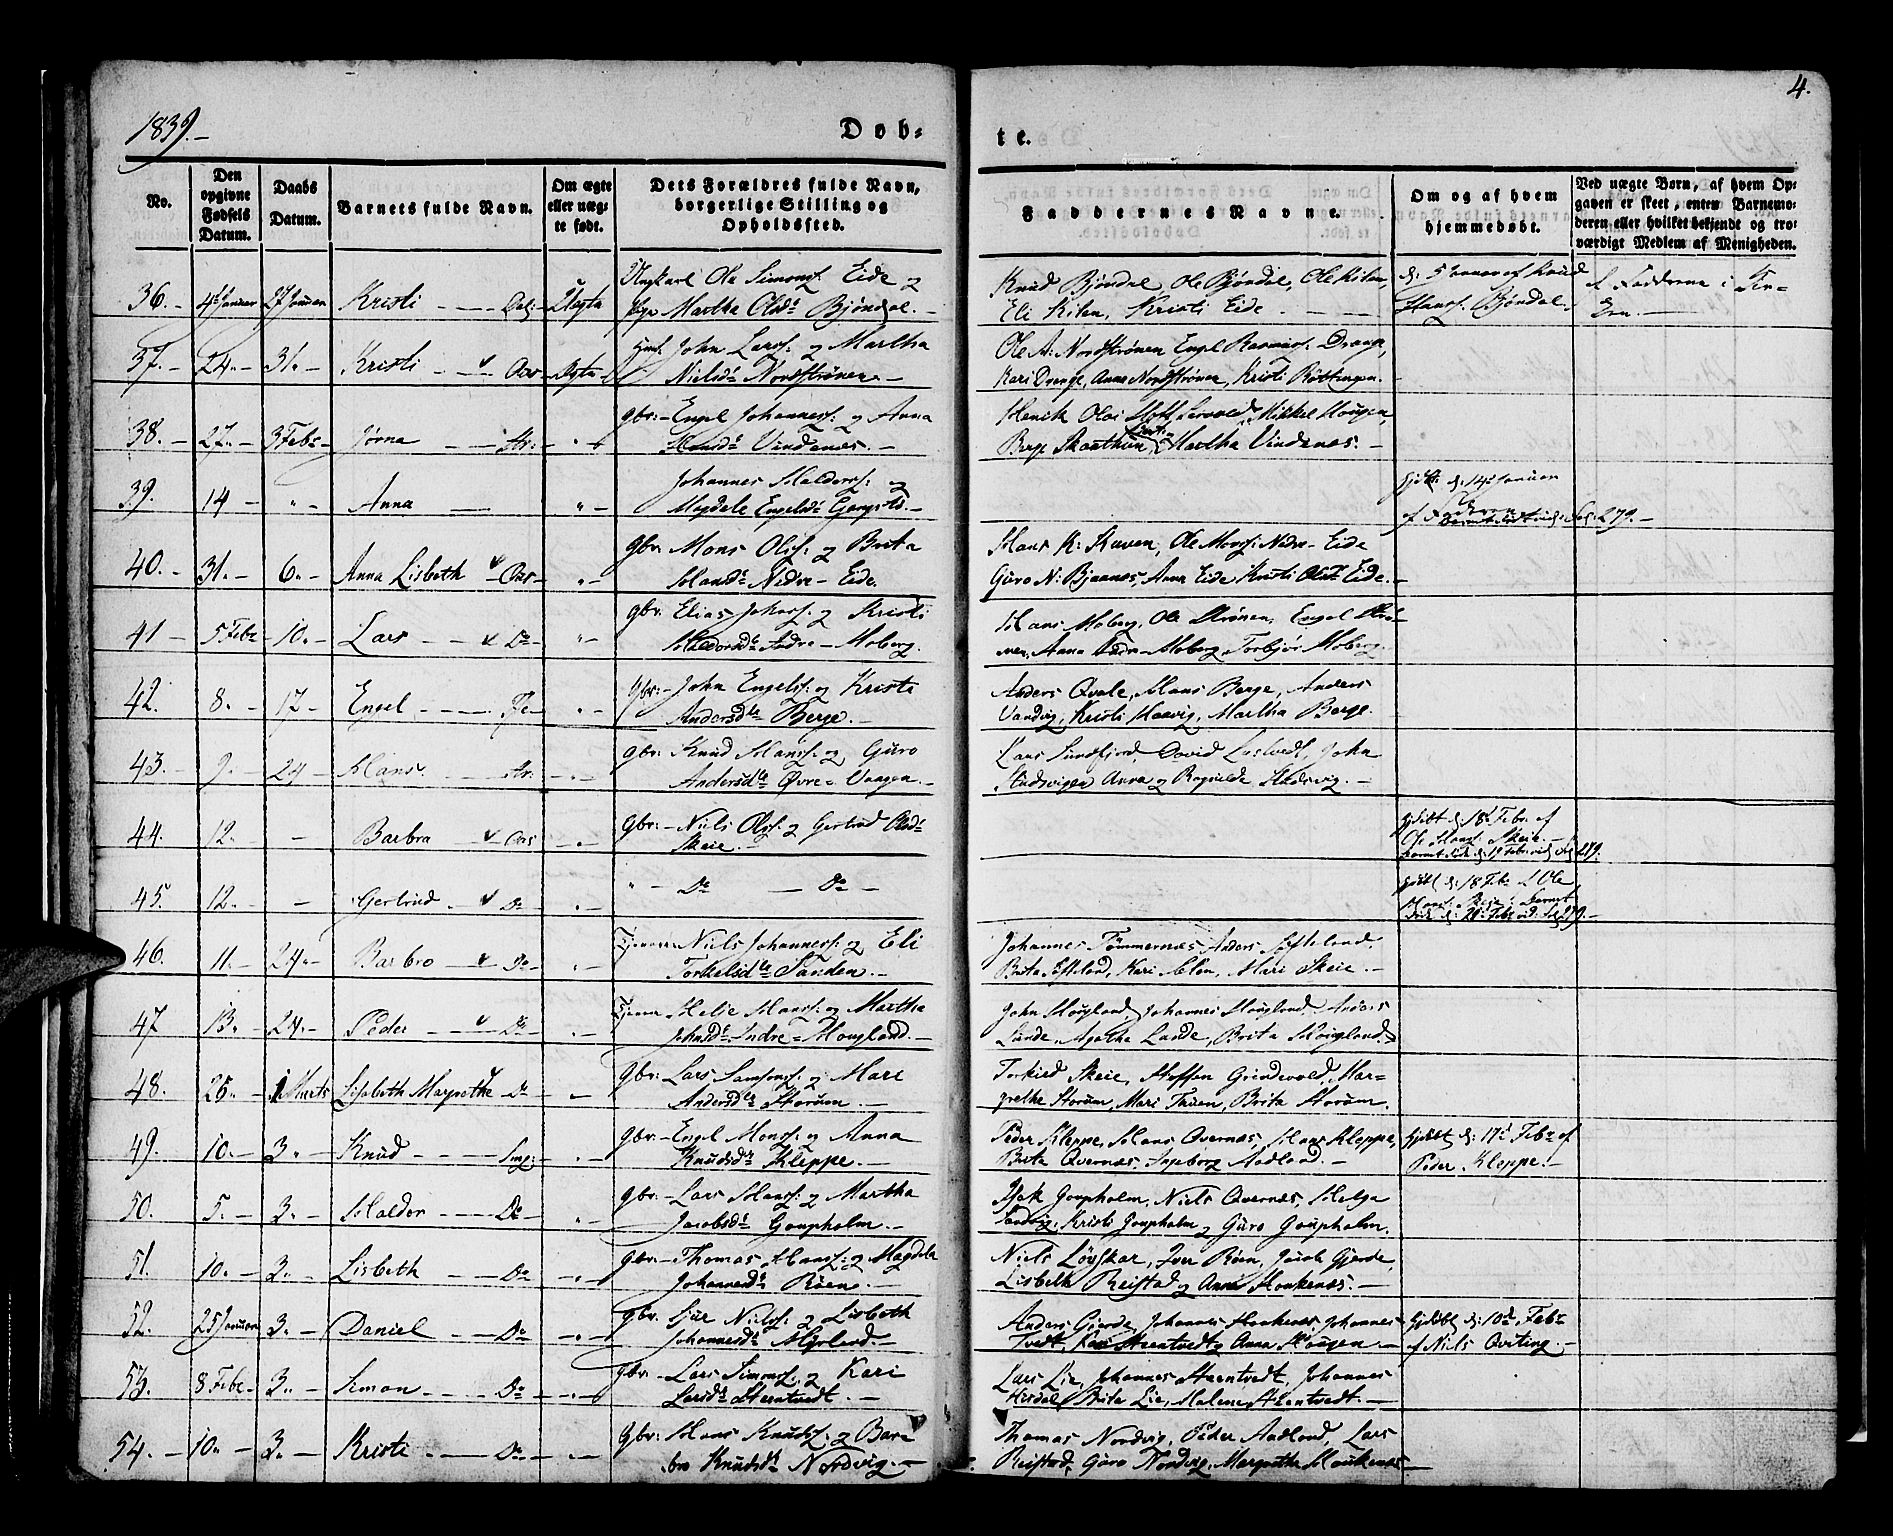 1839.-
Døb-
te.
4.
No.
Den opgivne Fødsels Datum.
Daabs Datum.
Barnets fulde Navn.
Om ægte eller uægte født.
Dets Forældres fulde Navn, borgerlige Stilling og Opholdssted.
Faddernes Navne.
Om og af hvem hjemmedøbt.
Ved uægte Børn, af hvem Opgaven er skeet, enten Barnemoderen eller hvilket bekjendt og troværdigt Medlem af Menigheden.
36. 4de Januar 27 Januar Kristi Uægte Ungkarl Ole Simons. Eide og
Pige Martha Olsdr Bjöndal.
Knud Bjöndal, Ole Bjöndal, Ole Kilen,
Eli Kilen, Kristi Eide
d. 5 Januar af Knud
Hans. Bjöndal.
37. 24. 31. Kristi Oos Ægte John Larss. og Martha
Nielsdr Nordströnen.
Ole A. Nordströnen Engel Rasmuss. Drange,
Kari Drange, Anna Nordströnen, Kristi Röttingen.
38. 27. 3 Febr Jörna Str. gbr. Engel Johanness. og Anna
Hansdr Vindenæs.
Henik Olai Leqvold, Mikkel Hougen,
Berge Skaathun, Martha Vindenæs.
39. 14 Anna Johannes Halders. og
Magdele Engelsdr
d. 14 Januar
279.
40. 31. 6. Anna Lisbeth Oos gbr. Mons Ols. og Brita
Hansdr Nedre-Eide.
Hans K. Skaven, Ole Monss. Nedre-Eide
Guro N. Bjaanæs, Anna Eide Kristi Olsdr Eide.
41 5 Febr 10. Lars Do gbr. Elias Johans. og Kristi
Haldorsdr Indre-Moberg.
Hans Moberg, Ole Strönen, Engel Strö-
nen, Anna Indre-Moberg, Torbjör Moberg.
42. 8. 17 Engel Fe gbr. John Engels. og Kristi
Andersdtr Berge.
Anders Qvale, Hans Berge, Anders
Vandvig, Kristi Haavig, Martha Berge.
43. 9. 24 Hans. Str. gbr. Knud Hans. og Guro
Andersdtr Övre-Vaagen.
Lars Sundfjord, David Leqvold, John
Stuasvigen Anna og Ragnilde Stuasvig.
44. 12. Barbra Oos gbr. Niels Ols. og Gertrud Olsdr
Skeie.
hjdøbt d. 18de Febr. af
Ole Hans. Skeie.
279.
45. 12. Gertrud Do Do Do
hjdøbt d. 18 Febr. af Ole
Hans. Skeie
279.
46. 11. 24. Barbro Do Tjenere Niels Johanness. og Eli
Torkelsdtr Sanden.
Johannes Tömmernæs Anders Søfteland,
Brita Søfteland, Kari Aalen, Mari Skeie.
47 13. 24. Peder Do Tjener Helje Hans. og Martha
Johnsdr Indre-Hougland.
John Hougland, Johannes Hougland, Anders
Lunde, Agatha Lunde, Brita Hougland.
48. 25. 1 Marts Lisbeth Margrethe Do gbr. Lars Samsons. og Mari
Andersdtr Storum.
Torkild Skeie, Steffen Grindevold, Mar-
grethe Storum, Mari Tuen, Brita Storum.
49. 10. 3. Knud gbr. Engel Monss. og Anna
Knudsdr Kleppe.
Peder Kleppe, Hans Qvernæs, Hans Kleppe,
Brita Qvernæs, Ingeborg Aadland.
hjdøbt d. 17de Febr af
Peder Kleppe.
50. 5. 3. Haldor Do gbr. Lars Hans. og Martha
Jacobsdr Goupholm.
Isak Goupholm, Niels Qvernæs, Helga
Sandvig, Kristi Goupholm og Guro Goupholm.
51. 10. 3. Lisbeth Do gbr. Thomas Hans. og Magdela
Johannesdr Röen.
Niels Lövskar, Iver Röen, Jacob Gjerde,
Lisbeth Reistad og Anna Haukenæs.
52. 25 Januar 3. Daniel Do gbr. Sjur Niels. og Lisbeth
Johannesdr Myrland.
Anders Gjerde, Johannes Haukenæs, Johannes
Tvedt, Kari Steentvedt og Anna Hougen.
hjdøbt d. 10de Febr
af Niels Qviting.
53. 8 Febr 3. Simon Do gbr. Lars Simons. og Kari
Larsdr Steentvedt.
Lars Lie, Johannes Steentvedt, Johannes
Hisdal, Brita Lie, Malene Steentvedt.
54. 10. 3. Kristi Do gbr. Hans Knuds. og Bar-
bro Knudsdr Nordvig.
Thomas Nordvig, Peder Aadland, Lars
Reistad, Guro Nordvig, Margretha Haukenæs